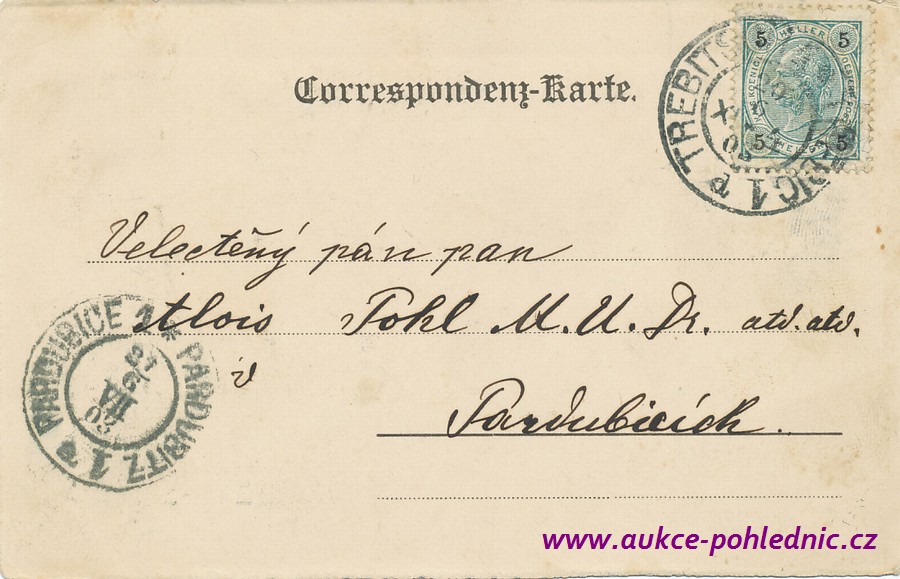 Correspondenz-Karte.
5 HELLER 5
5 5
TREBITSCH
1
Velectěný pán pan
Alois Pohl M. U. Dr. atd. atd.
v
Pardubicích.
PARDUBICE 1 * PARDUBITZ 1
www.aukce-pohlednic.cz